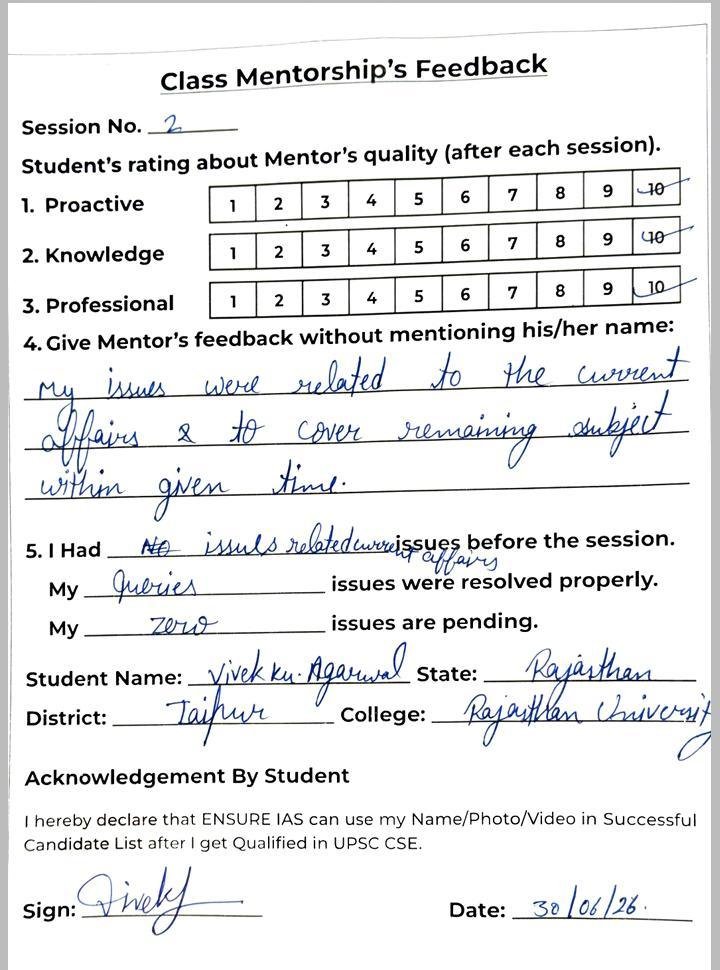 Class Mentorship's Feedback
Session No. 2
Student's rating about Mentor's quality (after each session).
1. Proactive 1 2 3 4 5 6 7 8 9 10
2. Knowledge 1 2 3 4 5 6 7 8 9 10
3. Professional 1 2 3 4 5 6 7 8 9 10
4. Give Mentor's feedback without mentioning his/her name:
My issues were related to the current
affairs & to cover remaining subject
within given time.
5. I Had No issues related current affairs issues before the session.
My Queries issues were resolved properly.
My zero issues are pending.
Student Name: Vivek Ku. Agarwal State: Rajasthan
District: Jaipur College: Rajasthan University
Acknowledgement By Student
I hereby declare that ENSURE IAS can use my Name/Photo/Video in Successful
Candidate List after I get Qualified in UPSC CSE.
Sign: Vivek Date: 30/06/26.